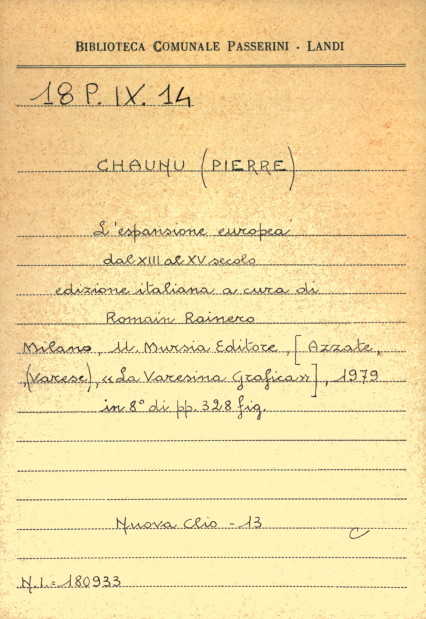 BIBLIOTECA COMUNALE PASSERINI - LANDI
18 P. IX. 14
CHAUNU (PIERRE)
L'espansione europea
dal XIII al XV secolo
edizione italiana a cura di
Romain Rainero
Milano, U. Mursia Editore, [Azzate,
(Varese), «La Varesina Grafica»], 1979
in 8° di pp. 328 fig.
Nuova Clio - 13
C
N.I. = 180933